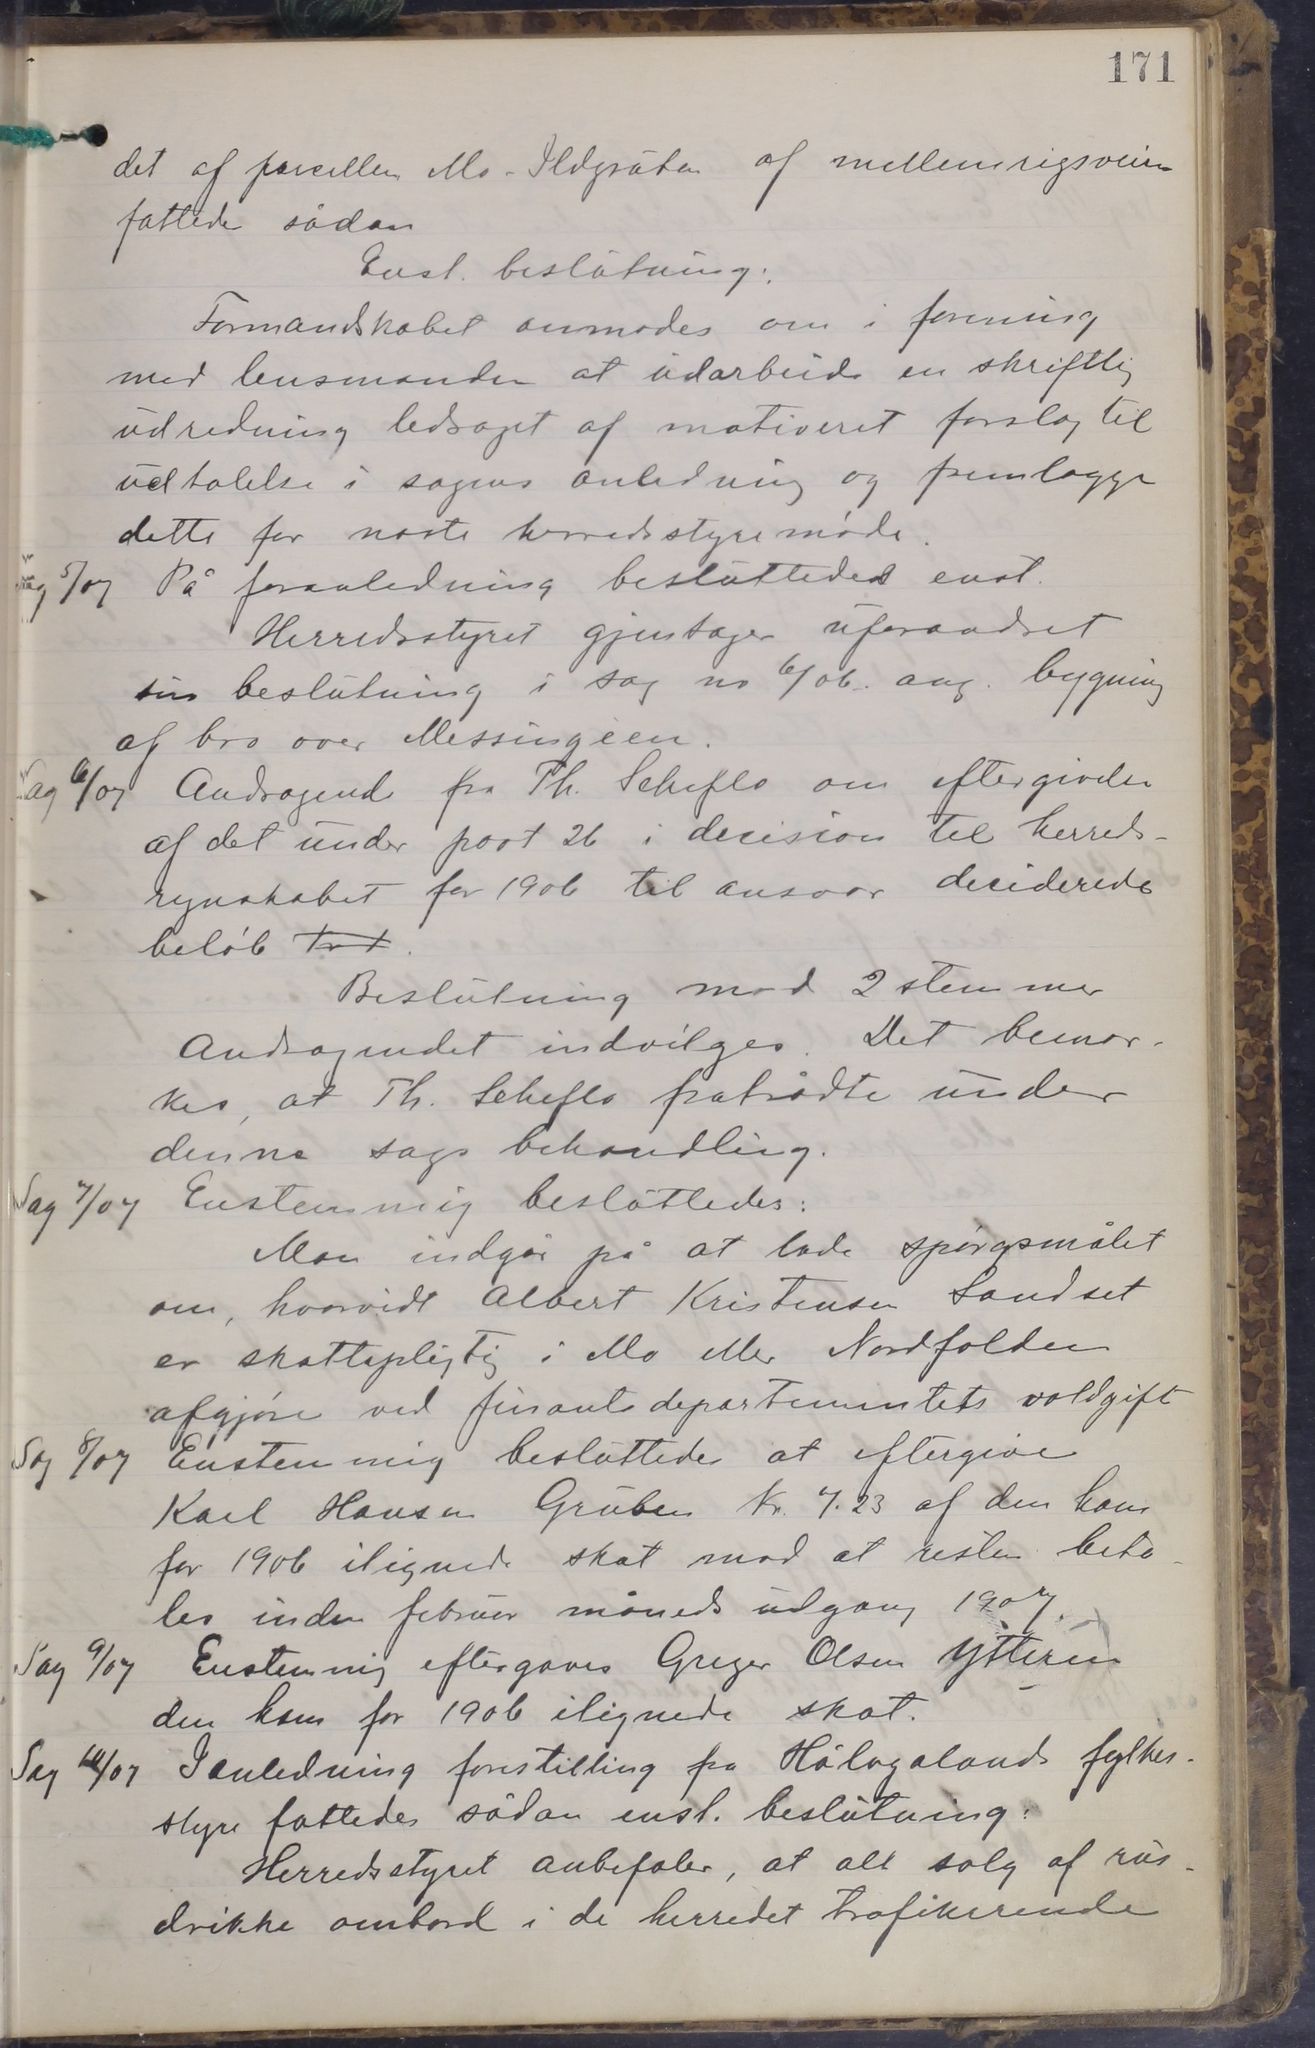 171
det af parcellen Mo-Ildgruben af mellemrigsveien
fattede sådan
Enst. beslutning:
Formandskabet anmodes om i forening
med lensmanden at udarbeide en skriftlig
udredning ledsaget af motiveret forslag til
udtalelse i sagens anledning og fremlægge
dette for næste herredsstyremøde.
5/07 På foranledning besluttedes enst.
Herredsstyret gjentager uforandret
sin beslutning i sag no 6/06 ang. bygning
af bro over Messingåen.
Sag 6/07 Andragende fra Th. Scheflo om eftergivelse
af det under post 26 i decision til herreds-
regnskabet for 1906 til ansvar deciderede
beløb
Beslutning mod 2 stemmer
Andragendet indvilges. Det bemær-
kes, at Th. Scheflo fratrådte under
denne sags behandling.
Sag 7/07 Enstemmig besluttedes:
Man indgår på at lade spørgsmålet
om, hvorvidt Albert Kristensen Sandset
er skattepligtig i Mo eller Nordfolden
afgjøre ved finantsdepartementets voldgift
Sag 8/07 Enstemmig besluttedes at eftergive
Karl Hansen Gruben kr. 7.23 af den ham
for 1906 ilignede skat mod at resten beta-
les inden februar måneds udgang 1907.
Sag 9/07 Enstemmig eftergaves Greger Olsen Ytteren
den ham for 1906 ilignede skat.
Sag 10/07 I anledning forestilling fra Hålogalands fylkes-
styre fattedes sådan enst. beslutning:
Herredsstyret anbefaler, at alt salg af rus-
drikke ombord i de herredet trafikerende